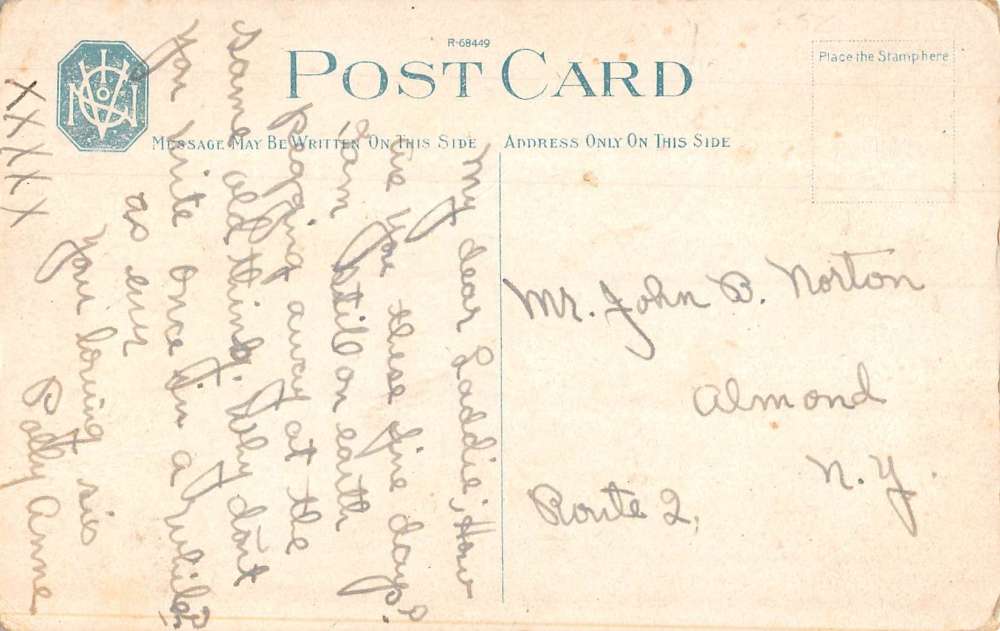 R-68449
POST CARD
Place the Stamp here
MESSAGE MAY BE WRITTEN ON THIS SIDE
ADDRESS ONLY ON THIS SIDE
My dear Laddie; How
are you these fine days?
I am still on earth
pegging away at the
same old thing. Why don't
you write once in a while?
as ever
your loving sis
Polly Anne
XXXXX
Mr. John B. Norton
Almond
N.Y.
Route 2,